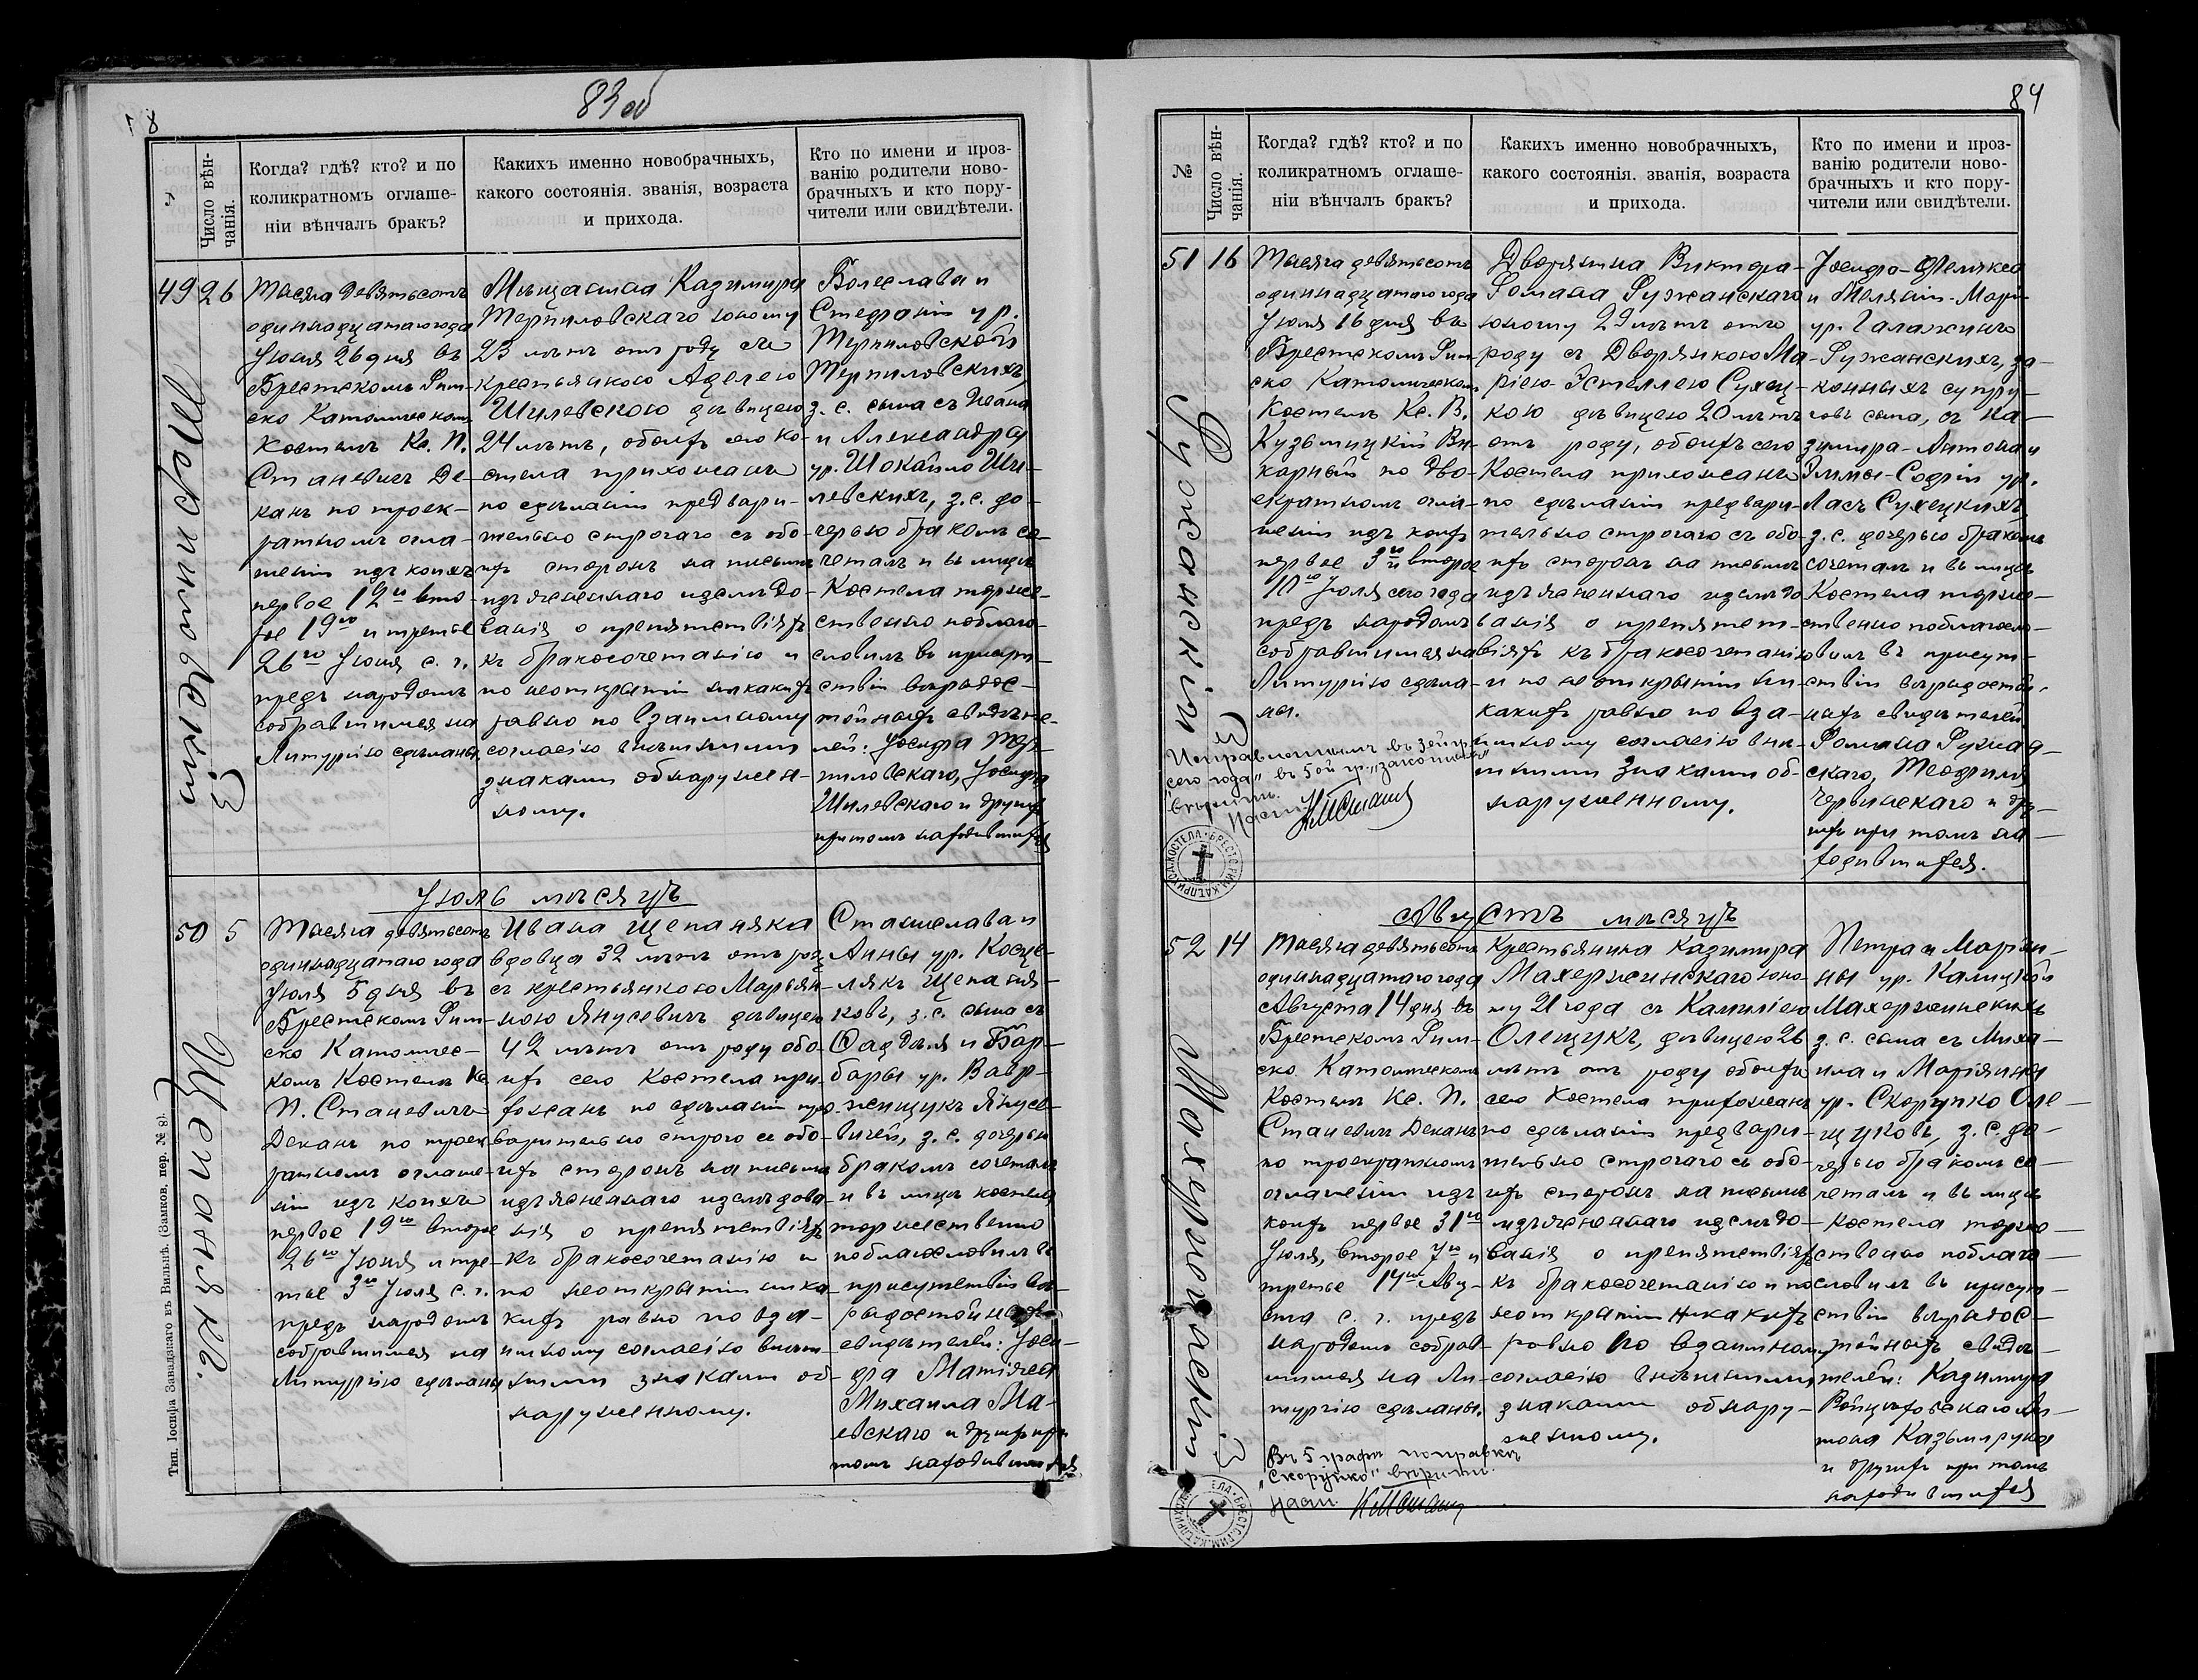 83 об
№
Число вѣн-
чанія.
Когда? гдѣ? кто? и по
коликратномъ оглаше-
ніи вѣнчалъ бракъ?
Какихъ именно новобрачныхъ,
какого состоянія. званія, возраста
и прихода.
Кто по имени и проз-
ванію родители ново-
брачныхъ и кто пору-
чители или свидѣтели.
49
26
Терпиловскій З
Тысяча девятьсотъ
одиннадцатаго года
Іюня 26 дня въ
Брестскомъ Рим-
ско Католическомъ
Костелѣ Кс. П.
Станевичъ Де-
канъ по троек-
ратномъ огла-
шеніи изъ коихъ
первое 12го вто-
рое 19го и третье
26го Іюня с. г.
предъ народомъ
собравшимся на
Литургію сдѣланы.
Мѣщанина Казимира
Терпиловскаго юношу
23 лѣтъ отъ роду съ
крестьянкою Аделею
Шилевскою дѣвицею
24 лѣтъ, обоихъ сего Ко-
стела прихожанъ
по сдѣланіи предвари-
тельно строгаго съ обо-
ихъ сторонъ на письмѣ
изъясненнаго изслѣдо-
ванія о препятствіяхъ
къ бракосочетанію и
по неоткрытіи никакихъ
равно по взаимному
согласію внѣшними
знаками обнаружен-
ному.
Болеслава и
Стефаніи ур.
Терпиловской
Терпиловскихъ,
з. с. сына съ Ивана
и Александры
ур. Шокайло Ши-
левскихъ, з. с. до-
черью бракомъ со-
четалъ и въ лицѣ
Костела торже-
ственно поблаго-
словилъ въ присут-
ствіи вѣрадос-
тойныхъ свидѣте-
лей: Іосифа Тер-
пиловскаго, Іосифа
Шилевскаго и другихъ
при томъ находившихся
Іюль мѣсяцъ
50
5
Щепанякъ.
Тысяча девятьсотъ
одиннадцатаго года
Іюля 5 дня въ
Брестскомъ Рим-
ско Католичес-
комъ Костелѣ Кс.
П. Станевичъ
Деканъ по троек
ратномъ оглаше-
ніи изъ коихъ
первое 19го второе
26го Іюня и тре-
тье 3го Іюля с. г.
предъ народомъ
собравшимся на
Литургію сдѣланы
Ивана Щепаняка
вдовца 32 лѣтъ отъ роду
съ крестьянкою Марьян-
ною Янусевичъ дѣвицею
42 лѣтъ отъ роду обо-
ихъ сего Костела при-
хожанъ по сдѣланіи пред-
варительно строго съ обо-
ихъ сторонъ на письмѣ
изъясненнаго изслѣдова-
нія о препятствіяхъ
къ бракосочетанію и
по неоткрытіи ника-
кихъ равно по вза-
имному согласію внѣш-
ними знаками об-
наруженному.
Станислава и
Анны ур. Косце-
лякъ Щепаня-
ковъ, з. с. сына съ
Фаддѣя и Бар-
бары ур. Вавр-
женщукъ Янусе-
вичей, з. с. дочерью
бракомъ сочеталъ
и въ лицѣ костела
торжественно
поблагословилъ въ
присутствіи вѣ-
радостойныхъ
свидѣтелей: Іоси-
фа Матіяса
Михаила Ма-
евскаго и другихъ при
томъ находившихся
Тип. Іосифа Завадзкаго въ Вильнѣ. (Замков. пер. № 8).
84
№
Число вѣн-
чанія.
Когда? гдѣ? кто? и по
коликратномъ оглаше-
ніи вѣнчалъ бракъ?
Какихъ именно новобрачныхъ,
какого состоянія. званія, возраста
и прихода.
Кто по имени и проз-
ванію родители ново-
брачныхъ и кто пору-
чители или свидѣтели.
51
16
Ружанскій З
Тысяча девятьсотъ
одиннадцатаго года
Іюля 16 дня въ
Брестскомъ Рим-
ско Католическомъ
Костелѣ Кс. В.
Кузьмицкій Ви-
карный по дво-
екратномъ огла-
шеніи изъ коихъ
первое 3го и второе
10го Іюля сего года
предъ народомъ
собравшимся на
Литургію сдѣла-
ны.
Исправленнымъ въ 3ей гр.
"сего года" въ 5ой гр. "законныхъ"
вѣрить.
Наст.
Дворянина Виктора-
Романа Ружанскаго
юношу 29 лѣтъ отъ
роду съ Дворянкою Ма-
ріею-Эстеллею Сухец-
кою дѣвицею 20 лѣтъ
отъ роду, обоихъ сего
Костела прихожанъ
по сдѣланіи предвари-
тельно строгаго съ обо-
ихъ сторонъ на письмѣ
изъясненнаго изслѣдо
ванія о препятст-
віяхъ къ бракосочетанію
и по неоткрытіи ни-
какихъ равно по вза-
имному согласію внѣ-
шними знаками об-
наруженному.
Іосифа-Феликса
и Меляніи-Маріи
ур. Галажинъ
Ружанскихъ, за-
конныхъ супру-
говъ сына, съ Ка-
зимира-Антона и
Эммы-Софіи ур.
Ласъ Сухецкихъ,
з. с. дочерью бракомъ
сочеталъ и въ лицѣ
Костела торже-
ственно поблагосло-
вилъ въ присут-
ствіи вѣрадостой-
ныхъ свидѣтелей
Романа Ружан-
скаго, Теофила
Червинскаго и дру-
гихъ при томъ на-
ходившихся.
БРЕСТС.РИМ.КАТ.ПРИХОД.КОСТЕЛА
Августъ мѣсяцъ
52
14
Махержинскій З
Тысяча девятьсотъ
одиннадцатаго года
Августа 14 дня въ
Брестскомъ Рим-
ско Католическомъ
Костелѣ Кс. П.
Станевичъ Деканъ
по троекратномъ
оглашеніи изъ
коихъ первое 31го
Іюля, второе 7го и
третье 14го Авгу-
ста с. г. предъ
народомъ собрав-
шимся на Ли-
тургію сдѣланы.
Въ 5 графѣ поправкѣ
"Скорупко" вѣрить.
Наст.
Крестьянина Казимира
Махержинскаго юно-
шу 21 года съ Камиліею
Олещукъ, дѣвицею 26
лѣтъ отъ роду обоихъ
сего Костела прихожанъ
по сдѣланіи предвари-
тельно строгаго съ обо-
ихъ сторонъ на письмѣ
изъясненнаго изслѣдо-
ванія о препятствіяхъ
къ бракосочетанію и по
неоткрытіи никакихъ
равно по взаимному
согласію внѣшними
знаками обнару-
женному.
Петра и Маріян-
ны ур. Калицкой
Махержинскихъ
з. с. сына съ Миха-
ила и Маріянны
ур. Скорупко Оле-
щуковъ, з. с. до-
черью бракомъ со-
четалъ и въ лицѣ
Костела торже-
ственно поблаго-
словилъ въ присут-
ствіи вѣрадос-
тойныхъ свидѣ-
телей: Казимира
Войцѣховскаго Ан-
тона Казьмирука
и другихъ при томъ
находившихся
БРЕСТС.РИМ.КАТ.ПРИХОД.КОСТЕЛА